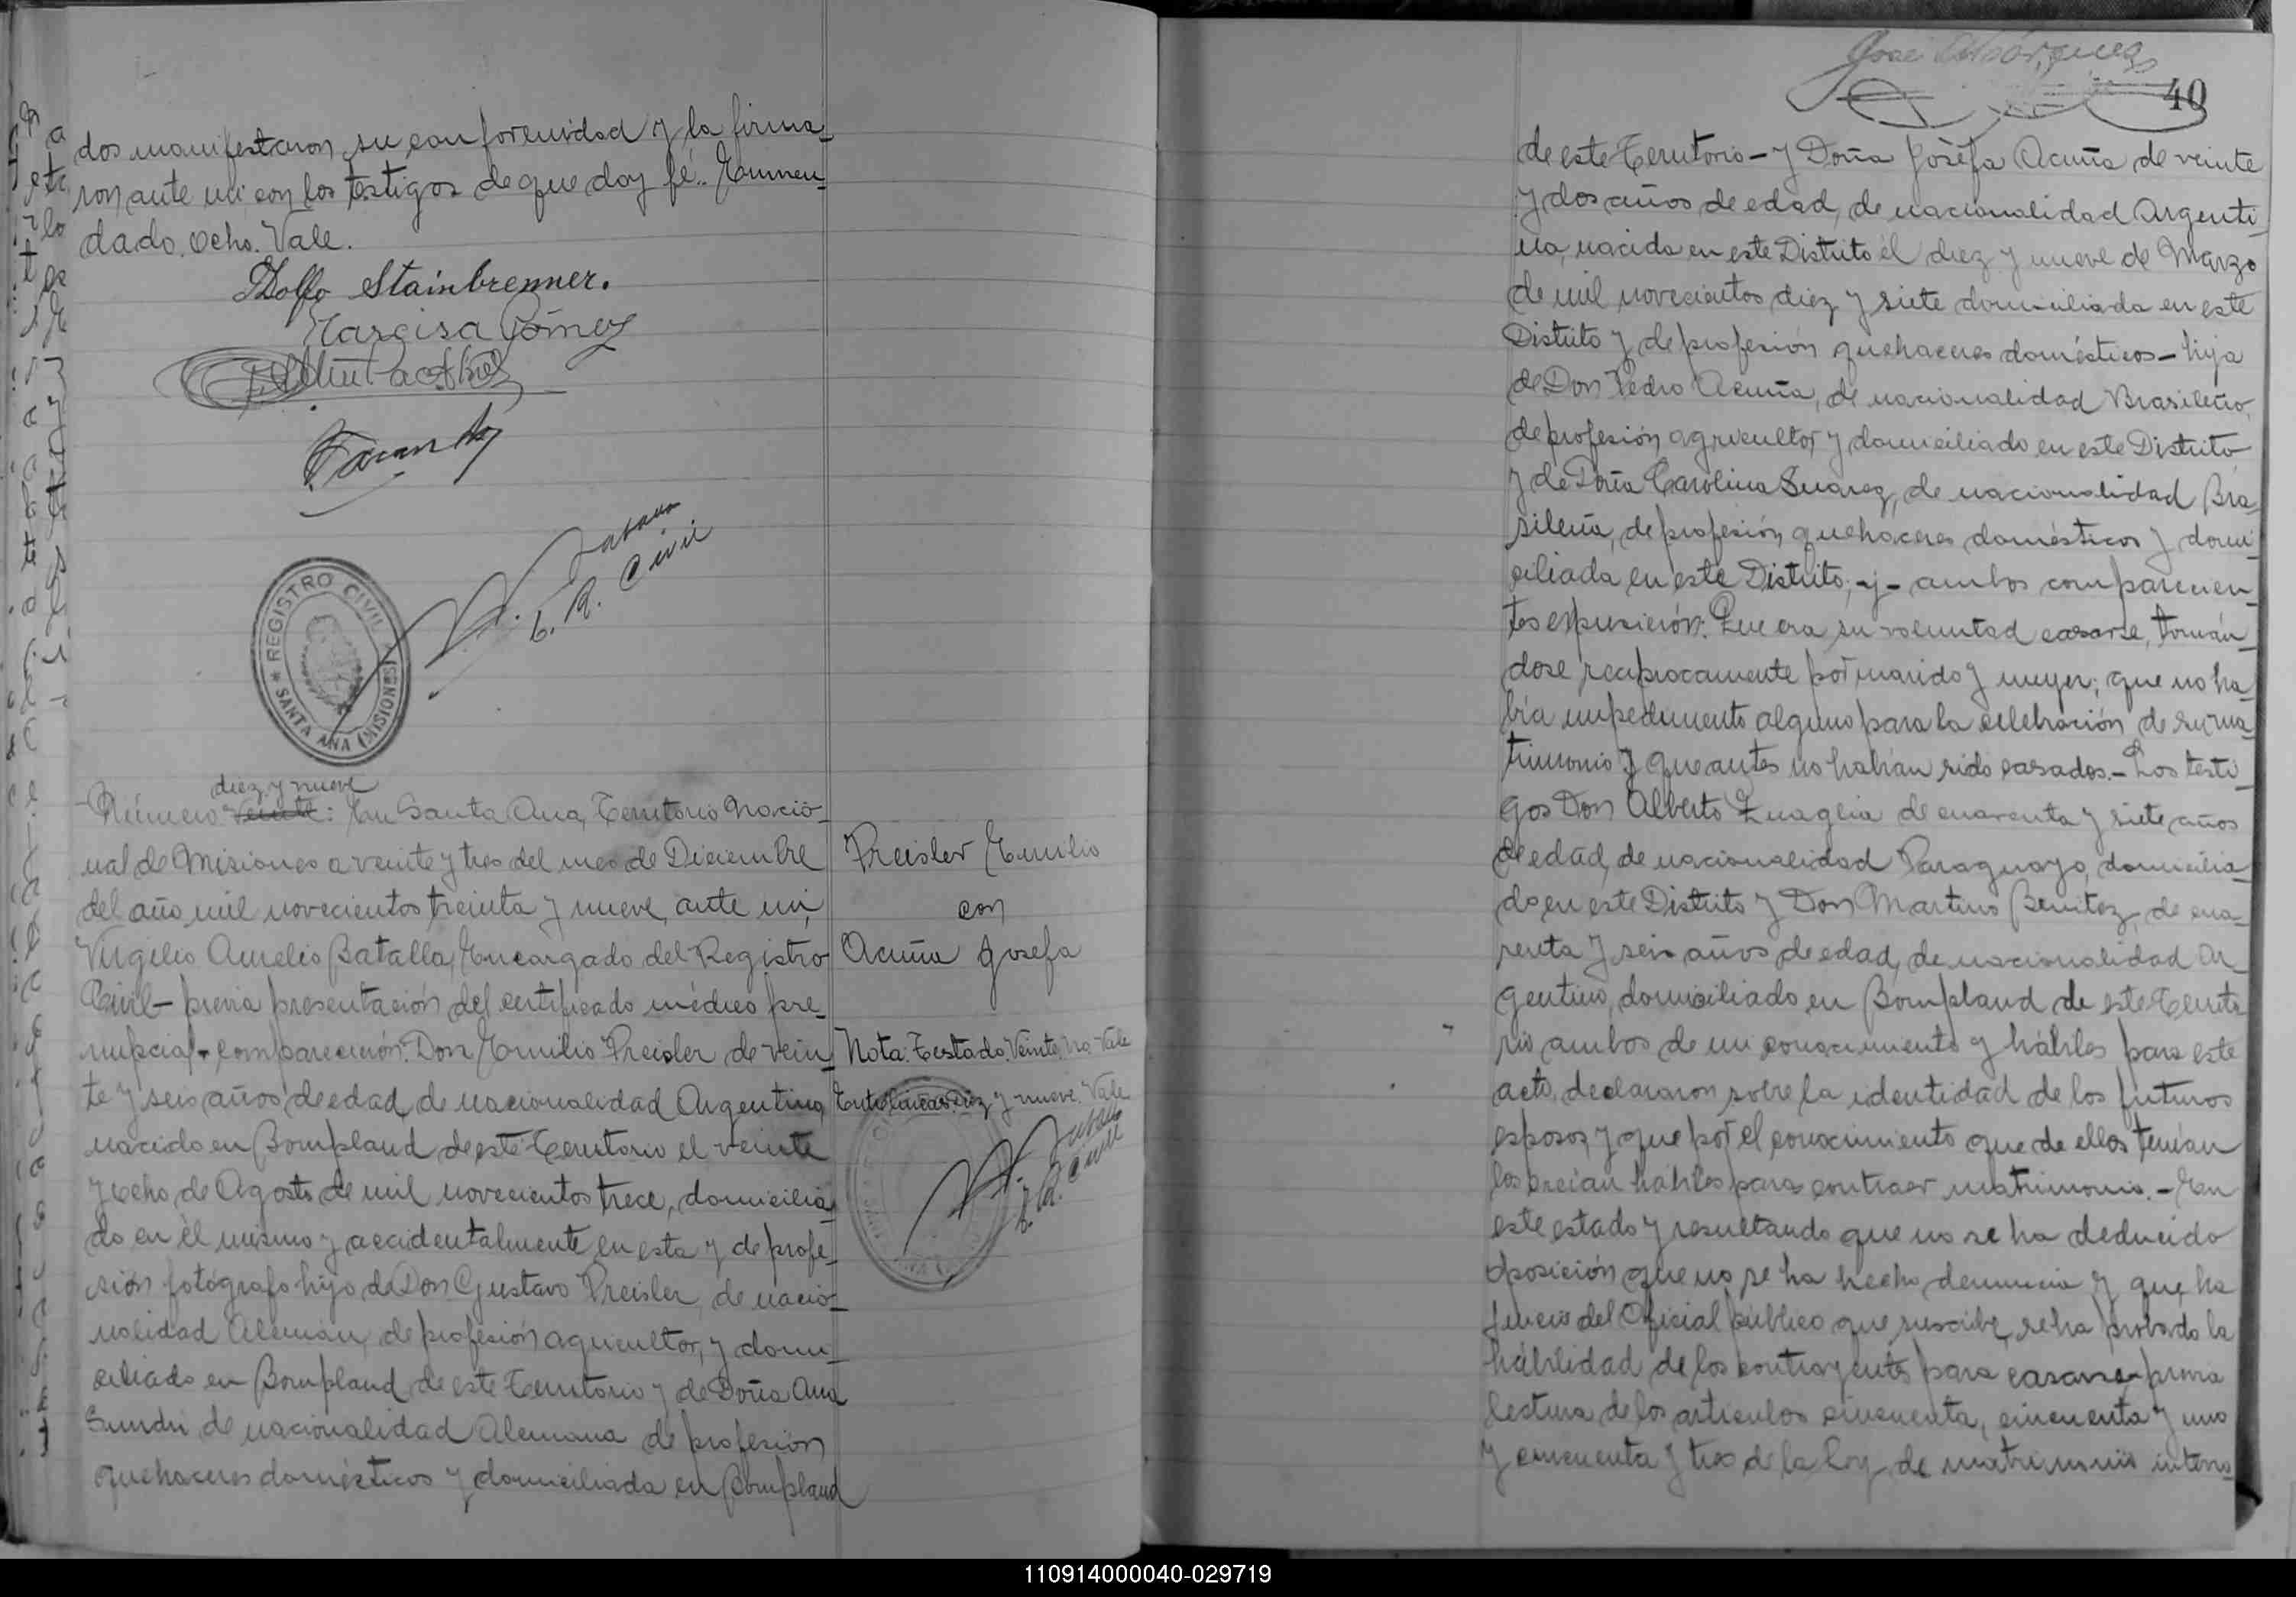 dos manifestaron su conformidad y la firma-
ron ante mi con los testigos de que doy fé.. Enmen-
dado. Ocho. Vale.
Adolfo Stainbrenner.
Narcisa Gómez
REGISTRO CIVIL
SANTA ANA (MISIONES)
E. R. Civil
diez y nueve
Número veinte: En Santa Ana, Territorio Nacio-
nal de Misiones a veinte y tres del mes de Diciembre
del año mil novecientos treinta y nueve, ante mi,
Virgilio Aurelio Batalla, Encargado del Registro
Civil – previa presentación del certificado médico pre-
nupcial – comparecieron: Don Emilio Preisler de vein-
te y seis años de edad, de nacionalidad Argentino,
nacido en Bompland de este Territorio el veinte
y ocho de Agosto de mil novecientos trece, domicilia-
do en el mismo y accidentalmente en esta y de profe-
sión fotógrafo hijo de Don Gustavo Preisler, de nacio-
nalidad Alemán, de profesión agricultor, y domi-
ciliado en Bompland de este Territorio y de Doña Ana
de nacionalidad Alemana de profesión
quehaceres domésticos y domiciliada en Bompland
Preisler Emilio
con
Acuña Josefa
Nota: Testado: Veinte, No Vale
Entre lineas: diez y nueve. Vale
E. R. Civil
40
de este Territorio – y Doña Josefa Acuña de veinte
y dos años de edad, de nacionalidad Argenti-
na, nacida en este Distrito el diez y nueve de Marzo
de mil novecientos diez y siete domiciliada en este
Distrito y de profesión quehaceres domésticos – hija
de Don Pedro Acuña, de nacionalidad Brasileño,
de profesión agricultor y domiciliado en este Distrito
y de Doña Carolina Suarez, de nacionalidad Bra-
sileña, de profesión quehaceres domésticos y domi-
ciliada en este Distrito; – y – ambos comparecien-
tes expusieron: Que era su voluntad casarse, tomán-
dose reciprocamente por marido y mujer; que no ha-
bía impedimento alguno para la celebración de su ma-
trimonio y que antes no habían sido casados. – Los testi-
gos Don Alberto Quaglia de cuarenta y siete años
de edad, de nacionalidad Paraguayo, domicilia-
do en este Distrito y Don Martino Benitez, de cua-
renta y seis años de edad, de nacionalidad Ar-
gentino, domiciliado en Bompland de este Territo-
rio ambos de mi conocimiento y hábiles para este
acto, declararon sobre la identidad de los futuros
esposos y que por el conocimiento que de ellos tenían
los creían hábiles para contraer matrimonio. – En
este estado y resultando que no se ha deducido
oposición que no se ha hecho denuncia y que, ha
juicio del Oficial público que suscribe, se ha probado la
habilidad de los contrayentes para casarse – previa
lectura de los articulos cincuenta, cincuenta y uno
y cincuenta y tres de la Ley de matrimonio interro-
110914000040-029719